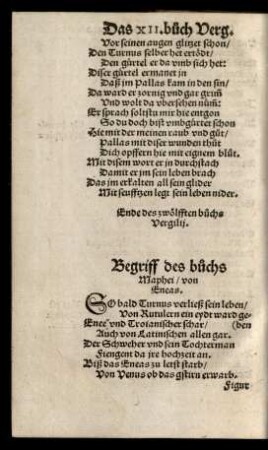 Das XII. bůch Verg.
Vor seinen augen glitzet schon/
Den Turnus selber het ertödt/
Den gürtel er da vmb sich het:
Diser gürtel ermanet jn
Daß jm Pallas kam in den sin/
Da ward er zornig vnd gar grim
Vnd wolt da vbersehen nüm:
Er sprach soltstu mir hie entgon
So du doch bist vmbgürtet schon
Hie mit der meinen raub vnd gůt/
Pallas mit diser wunden thůt
Dich opffern hie mit eignem blůt.
Mit disem wort er in durchstach
Damit er jm sein leben brach
Das jm erkalten all sein glider
Mit seufftzen legt sein leben nider.
Ende des zwölfften bůchs
Vergilij.
Begriff des bůchs
Maphei/ von
Eneas.
SO bald Turnus verließ sein leben/
Von Rutulern ein eydt ward ge-
Enee vnd Troianischer schar/ (ben
Auch von Latinischen allen gar.
Der Schweher vnd sein Tochterman
Fiengent da jre hochzeit an.
Biß das Eneas zu letst starb/
Von Venus ob das gstirn erwarb.
Figur